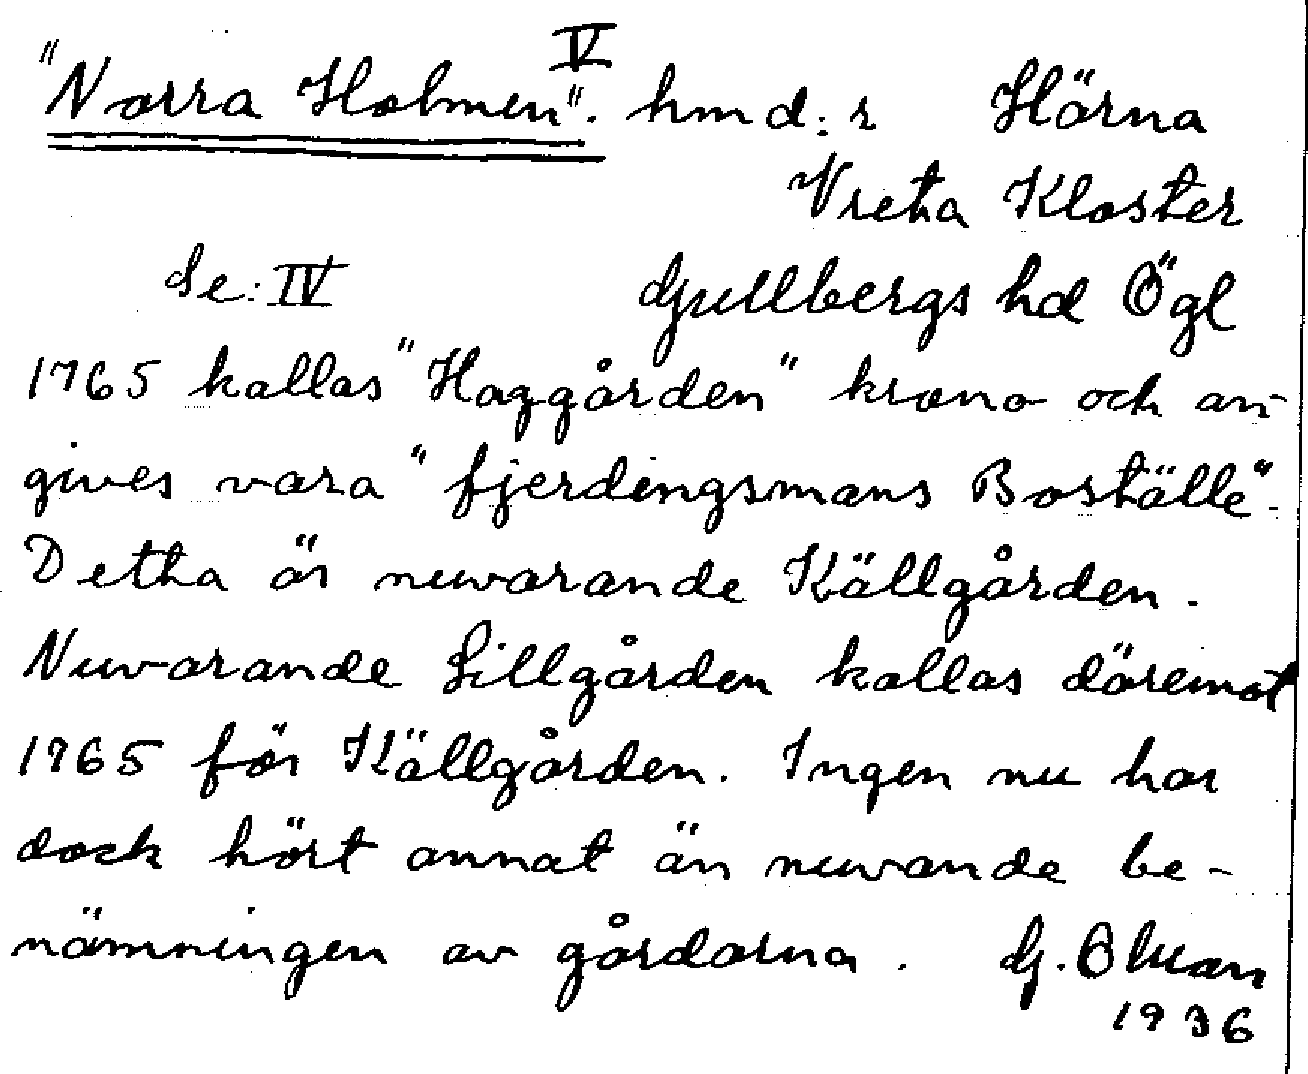 V
"Norra Holmen". hmd:r Hörna
Vreta Kloster
Se: IV Gullbergs hd Ögl
1765 kallas "Haggården" krono och an-
gives vara "fjerdingsmans Boställe".
Detta är nuvarande Källgården.
Nuvarande Lillgården kallas däremot
1765 för Källgården. Ingen nu har
dock hört annat än nuvande be-
nämningen av gårdarna. G. Ekman
1936